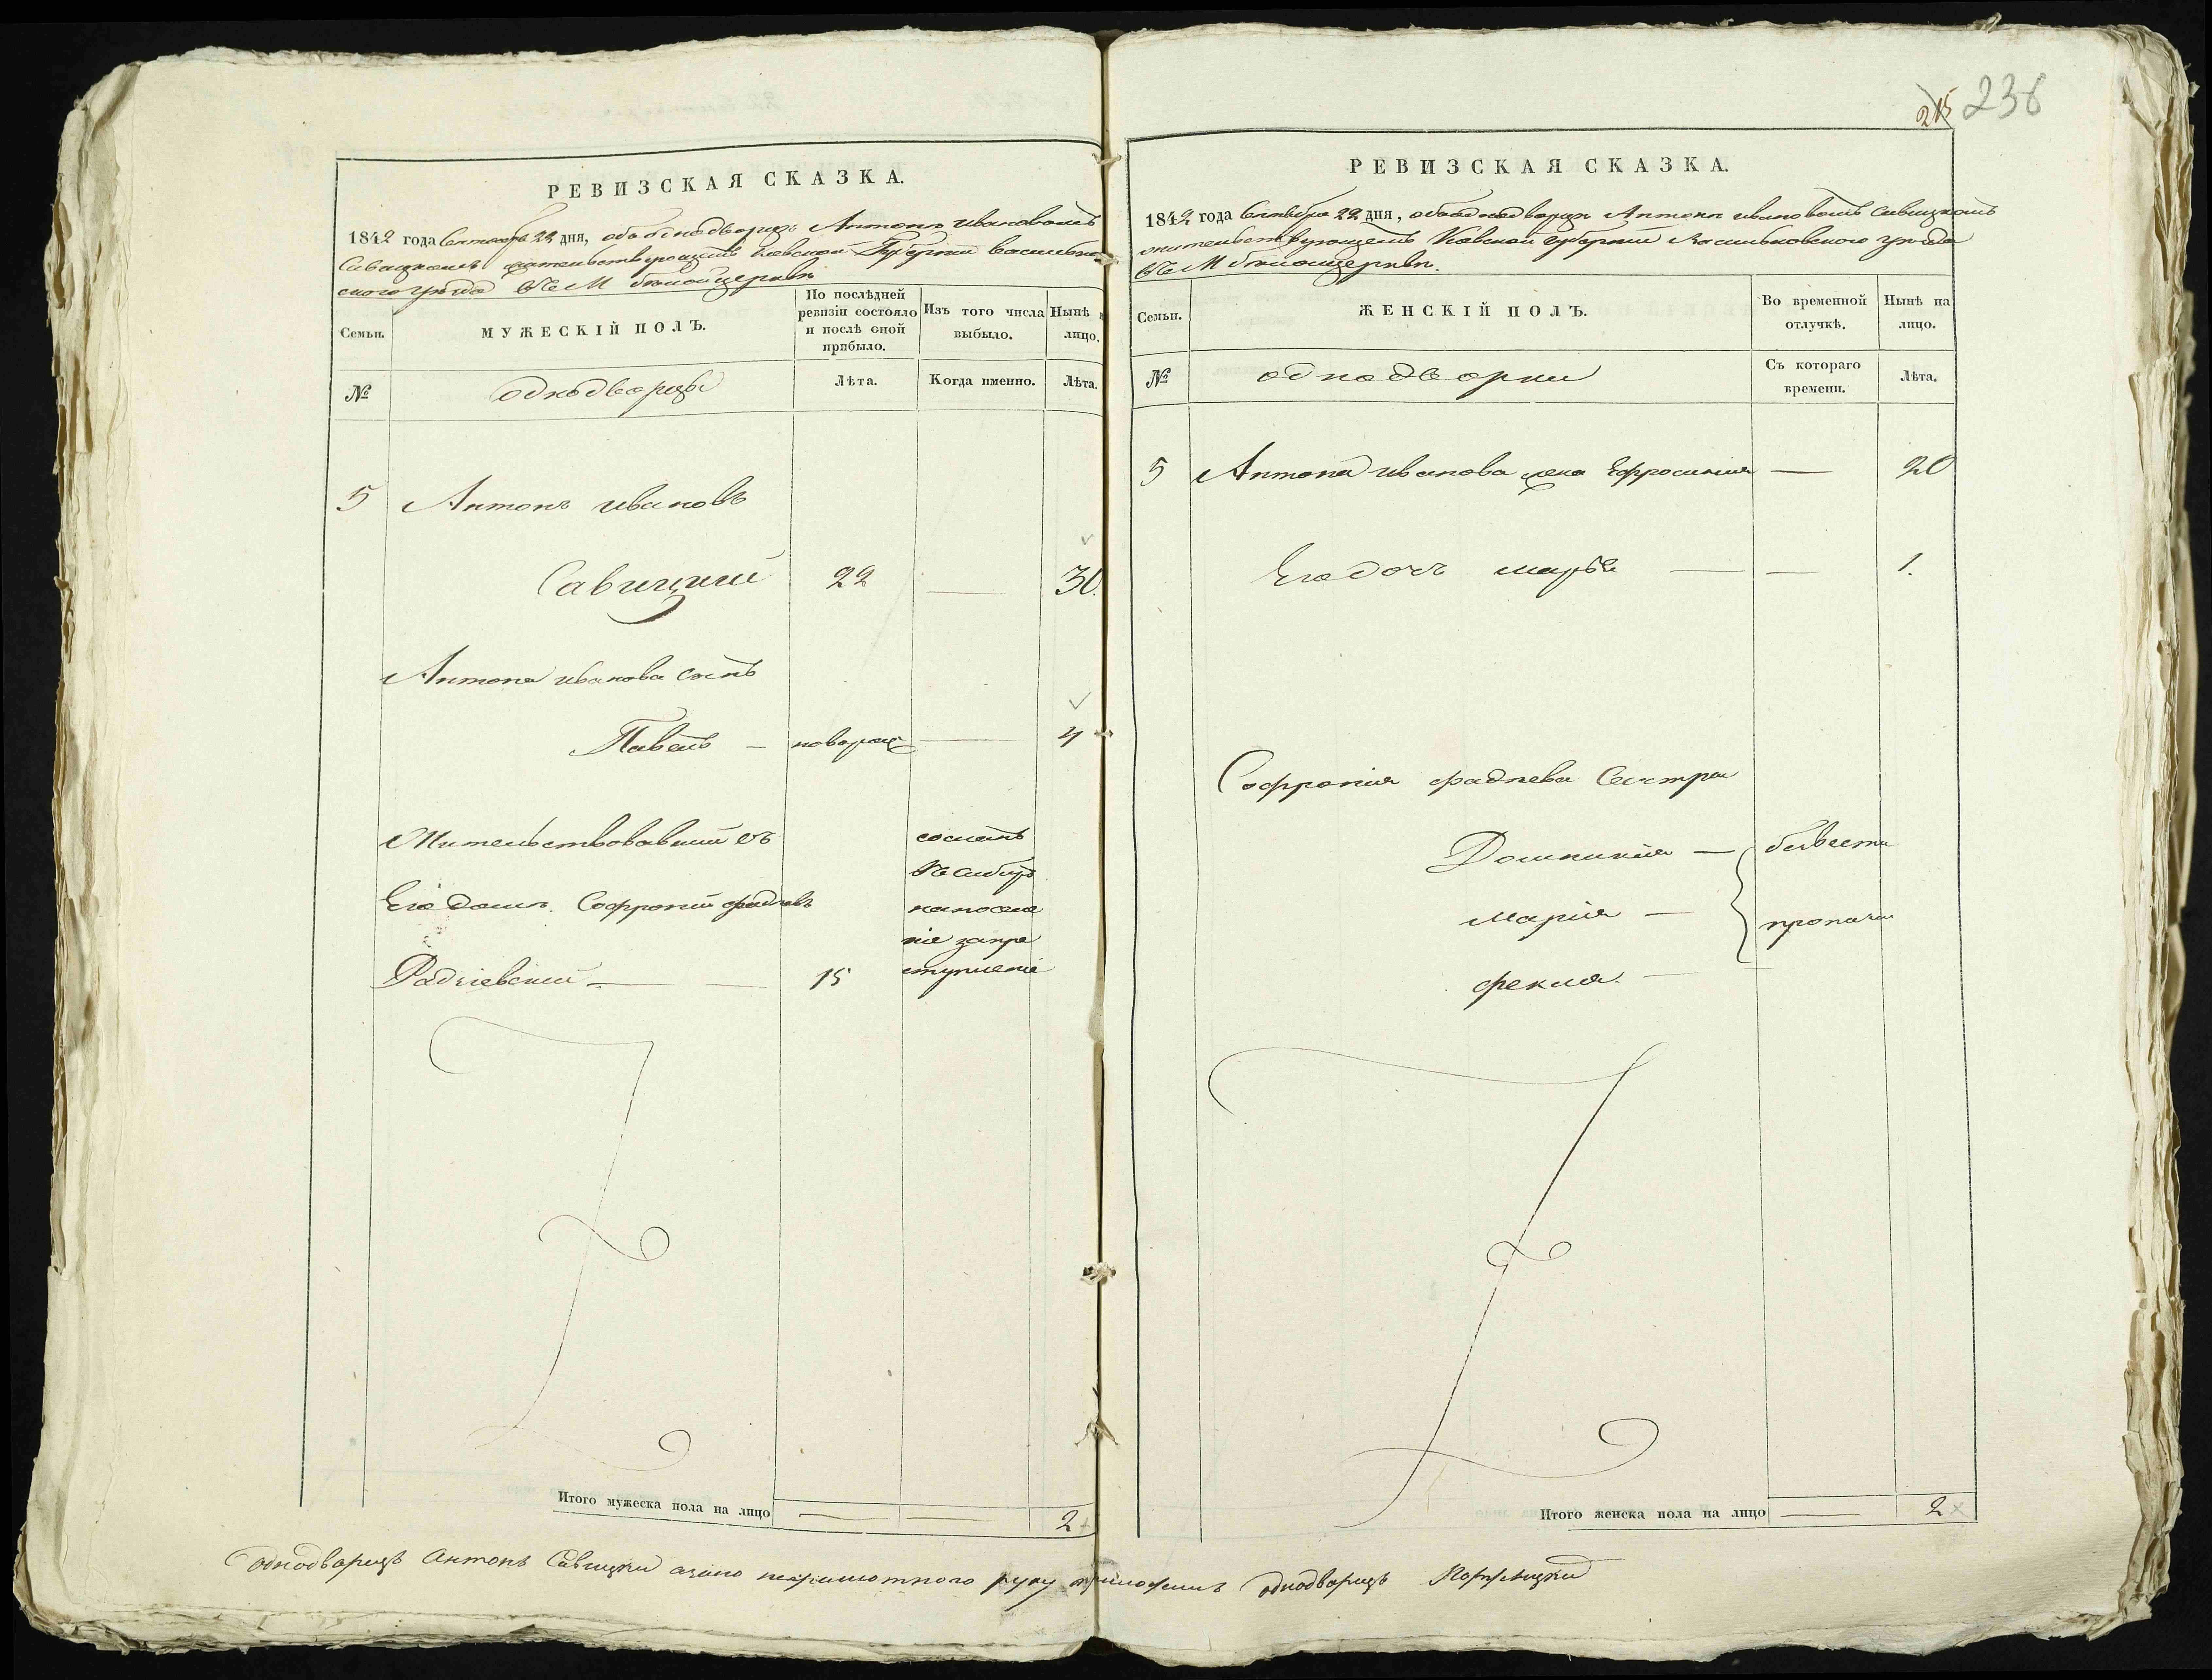 РЕВИЗСКАЯ СКАЗКА.
1842 года Сентября 22 дня, объ однодворцѣ Антонѣ Ивановомъ
Савицкомъ жительствующемъ Кіевской Губерніи Васильков
ского уѣзда въ М бѣлойцеркви
Семьи.
МУЖЕСКІЙ ПОЛЪ.
По послѣдней
ревизіи состояло
и послѣ оной
прибыло.
Изъ того числа
выбыло.
Нынѣ
лицо.
№
однодворцы
Лѣта.
Когда именно.
Лѣта.
5 Антонъ Ивановъ
Савицкий 22 — 30.
Антона Иванова сынъ
Павелъ — новорож — 4
Жительствовавший въ
Его домѣ. Софроній фадѣевъ
Радзіевский — — 15
сосланъ
въ сибирь
напоселе
ніе запре
ступленіе
Итого мужеска пола на лицо — — 2
215 236
РЕВИЗСКАЯ СКАЗКА.
1842 года Сентября 22 дня, объ однодворцѣ Антонѣ Ивановомъ Савицкомъ
жительствующемъ Кіевской губерніи Василковского уѣзда
въ М бѣлойцеркви.
Семьи.
ЖЕНСКІЙ ПОЛЪ.
Во временной
отлучкѣ.
Нынѣ на
лицо.
№
однодворки
Съ котораго
времени.
Лѣта.
5 Антона Иванова жена Ефросинія — 20
Его дочь марья — — 1.
Софронія фадѣева Сестра
Домникия —
мария —
фекла. —
безвести
пропали
Итого женска пола на лицо — 2
Однодворецъ Антонъ Савицкий азанего неграмотного руку приложилъ однодворецъ